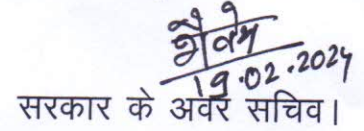 19.02.2024
सरकार के अवर सचिव।